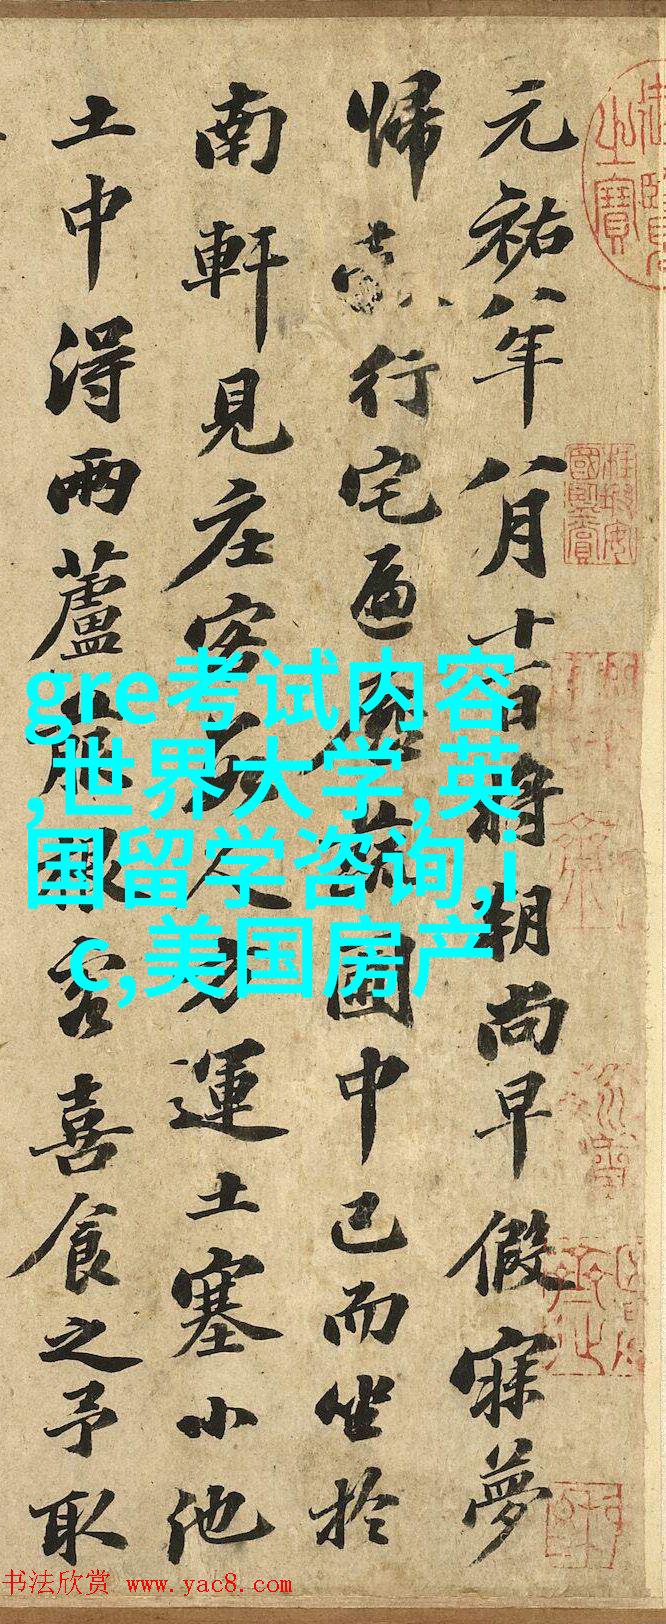 元祐八年八月十一日將朝尚早假寐夢
歸行宅遍歷蔬圃中已而坐於
南軒見庄客數人方運土塞小池
土中得兩蘆菔根客喜食之予取
gre考试内容
,世界大学,英
国留学咨询,i
c,美国房产
书法欣赏 www.yac8.com